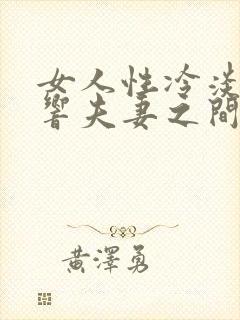 女人性冷淡
響夫妻之間
黃澤勇